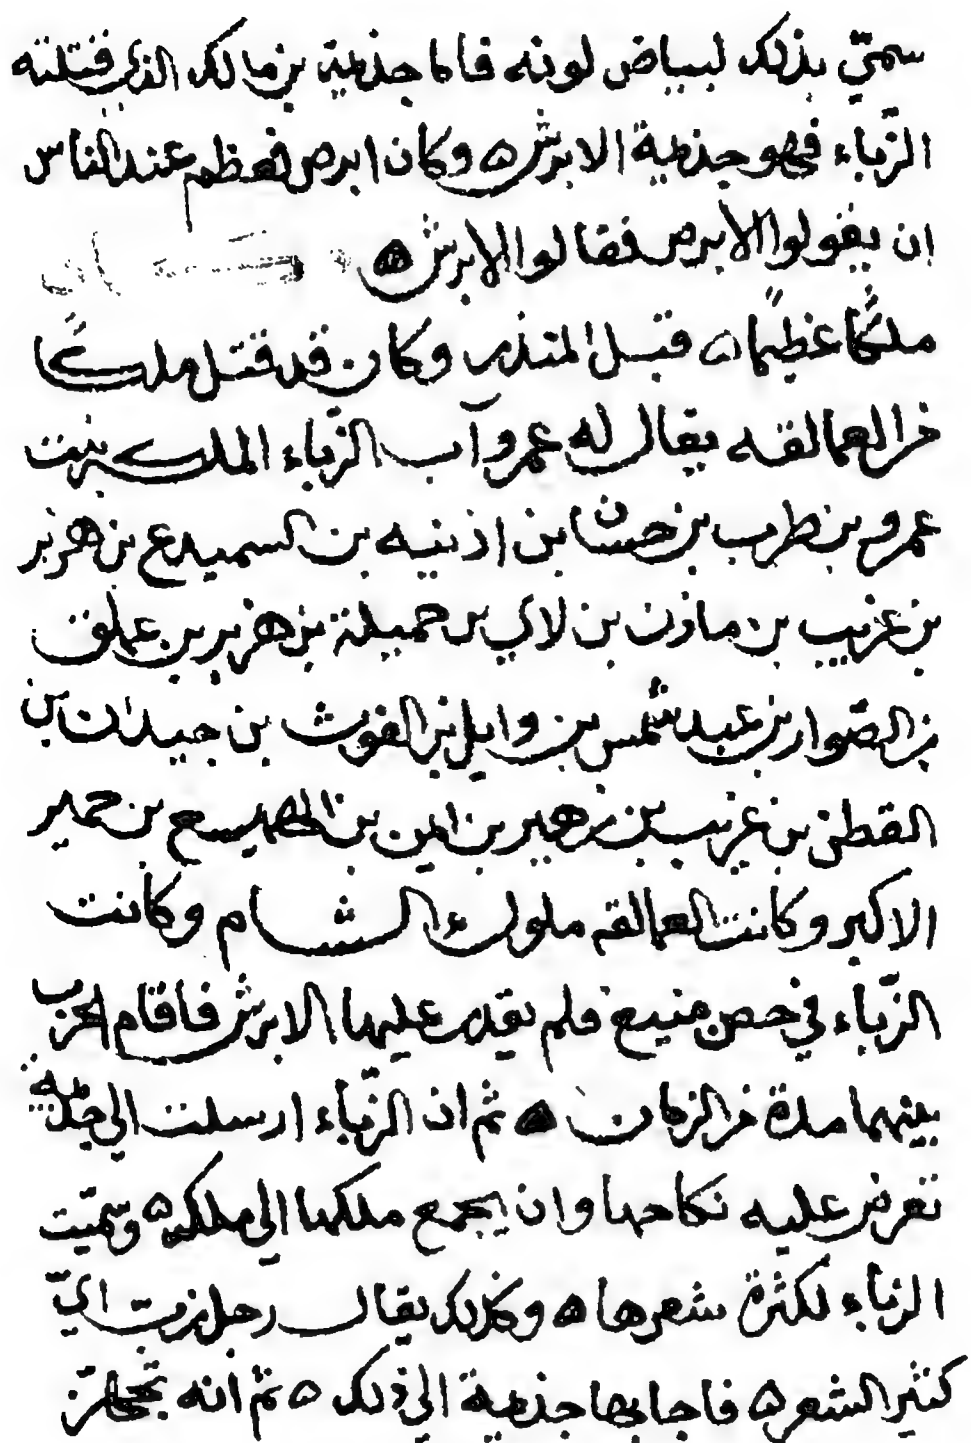 سمّي بذلك لبياض لونه فاما جذيمة بن مالك الذي قتلته
الزّباء فهو جذيمة الابرش ه وكان ابرص فعظم عند الناس
ان يقولوا الأبرص فقالوا الابرش ه
ملكًا عظيمًا ه قبل المنذر وكان قد قتل ملكًا
من العمالقه يقال له عمرو آب الزّباء الملك بنت
عمرو بن طرب بن حسان بن اذينيه بن السميدع بن هزبر
بن غريب بن مازن بن لاي بن حميلة بن هزبر بن عملق
بن الصّوار بن عبد شمس بن وايل بن الغوث بن جيدان بن
القطن بن غريب بن زهير بن ايمن بن الهميسع بن حمير
الاكبر وكانت العمالقه ملوك الشام وكانت
الزّباء في حصن منيع فلم يقدر عليها الابرش فاقام الحرب
بينهما مدة من الزمان ه ثم ان الزّباء ارسلت الى جذيمة
تعرض عليه نكاحها وان يجمع ملكها الى ملكه ه وسمّيت
الزّباء لكثرة شعرها ه وكذلك يقال رجل ازب ايّ
كثير الشعر ه فاجابها جذيمة الى ذلك ه ثم انه